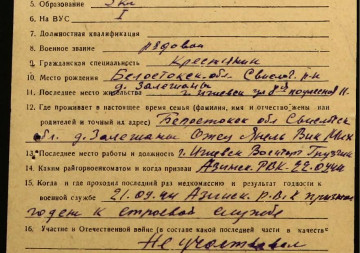 5. Образование 3 кл
6. На ВУС I
7. Должностная квалификация
8. Военное звание рядовой
9. Гражданская специальность Крестьянин
10. Место рождения Белостокск. обл. Свислоч. р-н
д. Залешаны
11. Последнее место жительства г. Ижевск ул.
12. Где проживает в настоящее время семья (фамилия, имя и отчество жены или
родителей и точный их адрес) Белостокск обл Свислочск
обл. д. Залешаны Отец Вик Мих
13. Последнее место работы и должность г. Ижевск Грузчик
14. Каким райгорвоенкоматом и когда призван Азинск. РВК-22.09.44
15. Когда и где проходил последний раз медкомиссию и результат годности к
военной службе 21.09.44 Азинск. р.в.к признан
годен к строевой службе
16. Участие в Отечественной войне (в составе какой последней части в качестве
Не участвовал